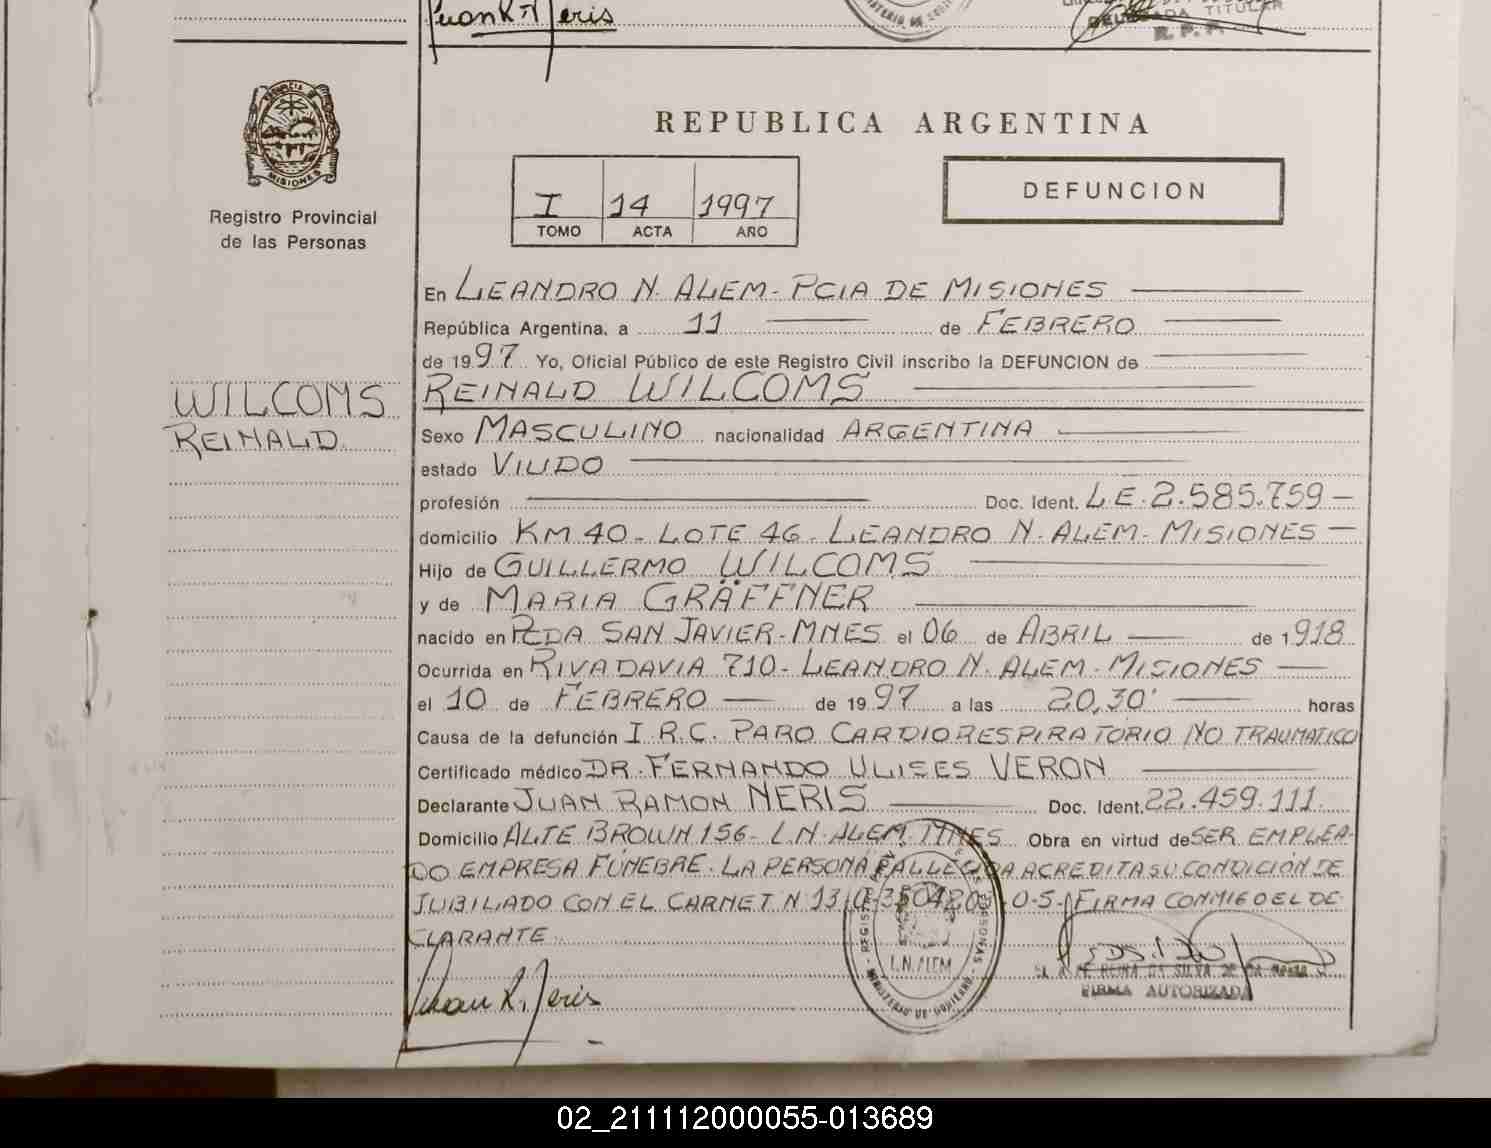 Juan R. Neris
DELEGADA TITULAR
R. P. P.
PROVINCIA DE
MISIONES
Registro Provincial
de las Personas
REPUBLICA ARGENTINA
I 14 1997
TOMO ACTA AÑO
DEFUNCION
En LEANDRO N. ALEM - PCIA DE MISIONES
República Argentina, a 11 de FEBRERO
de 1997 Yo, Oficial Público de este Registro Civil inscribo la DEFUNCION de
REINALD WILCOMS
WILCOMS
REINALD
Sexo MASCULINO nacionalidad ARGENTINA
estado VIUDO
profesión Doc. Ident. L.E. 2.585.759 -
domicilio KM 40 - LOTE 46 - LEANDRO N. ALEM - MISIONES -
Hijo de GUILLERMO WILCOMS
y de MARIA GRÄFFNER
nacido en PCDA SAN JAVIER - MNES el 06 de ABRIL de 1918
Ocurrida en RIVADAVIA 710 - LEANDRO N. ALEM - MISIONES
el 10 de FEBRERO de 1997 a las 20,30' horas
Causa de la defunción I.R.C. PARO CARDIORESPIRATORIO NO TRAUMATICO
Certificado médico DR. FERNANDO ULISES VERON
Declarante JUAN RAMON NERIS Doc. Ident. 22.459.111
Domicilio ALTE BROWN 156 - L.N. ALEM. MNES Obra en virtud de SER EMPLEA-
DO EMPRESA FÚNEBRE. LA PERSONA FALLECIDA ACREDITA SU CONDICIÓN DE
JUBILADO CON EL CARNET N 13 FIRMA CONMIGO EL DE-
CLARANTE
L.N. ALEM
MINISTERIO DE GOBIERNO
Juan R. Neris
REINA DA SILVA DE
FIRMA AUTORIZADA
02_211112000055-013689